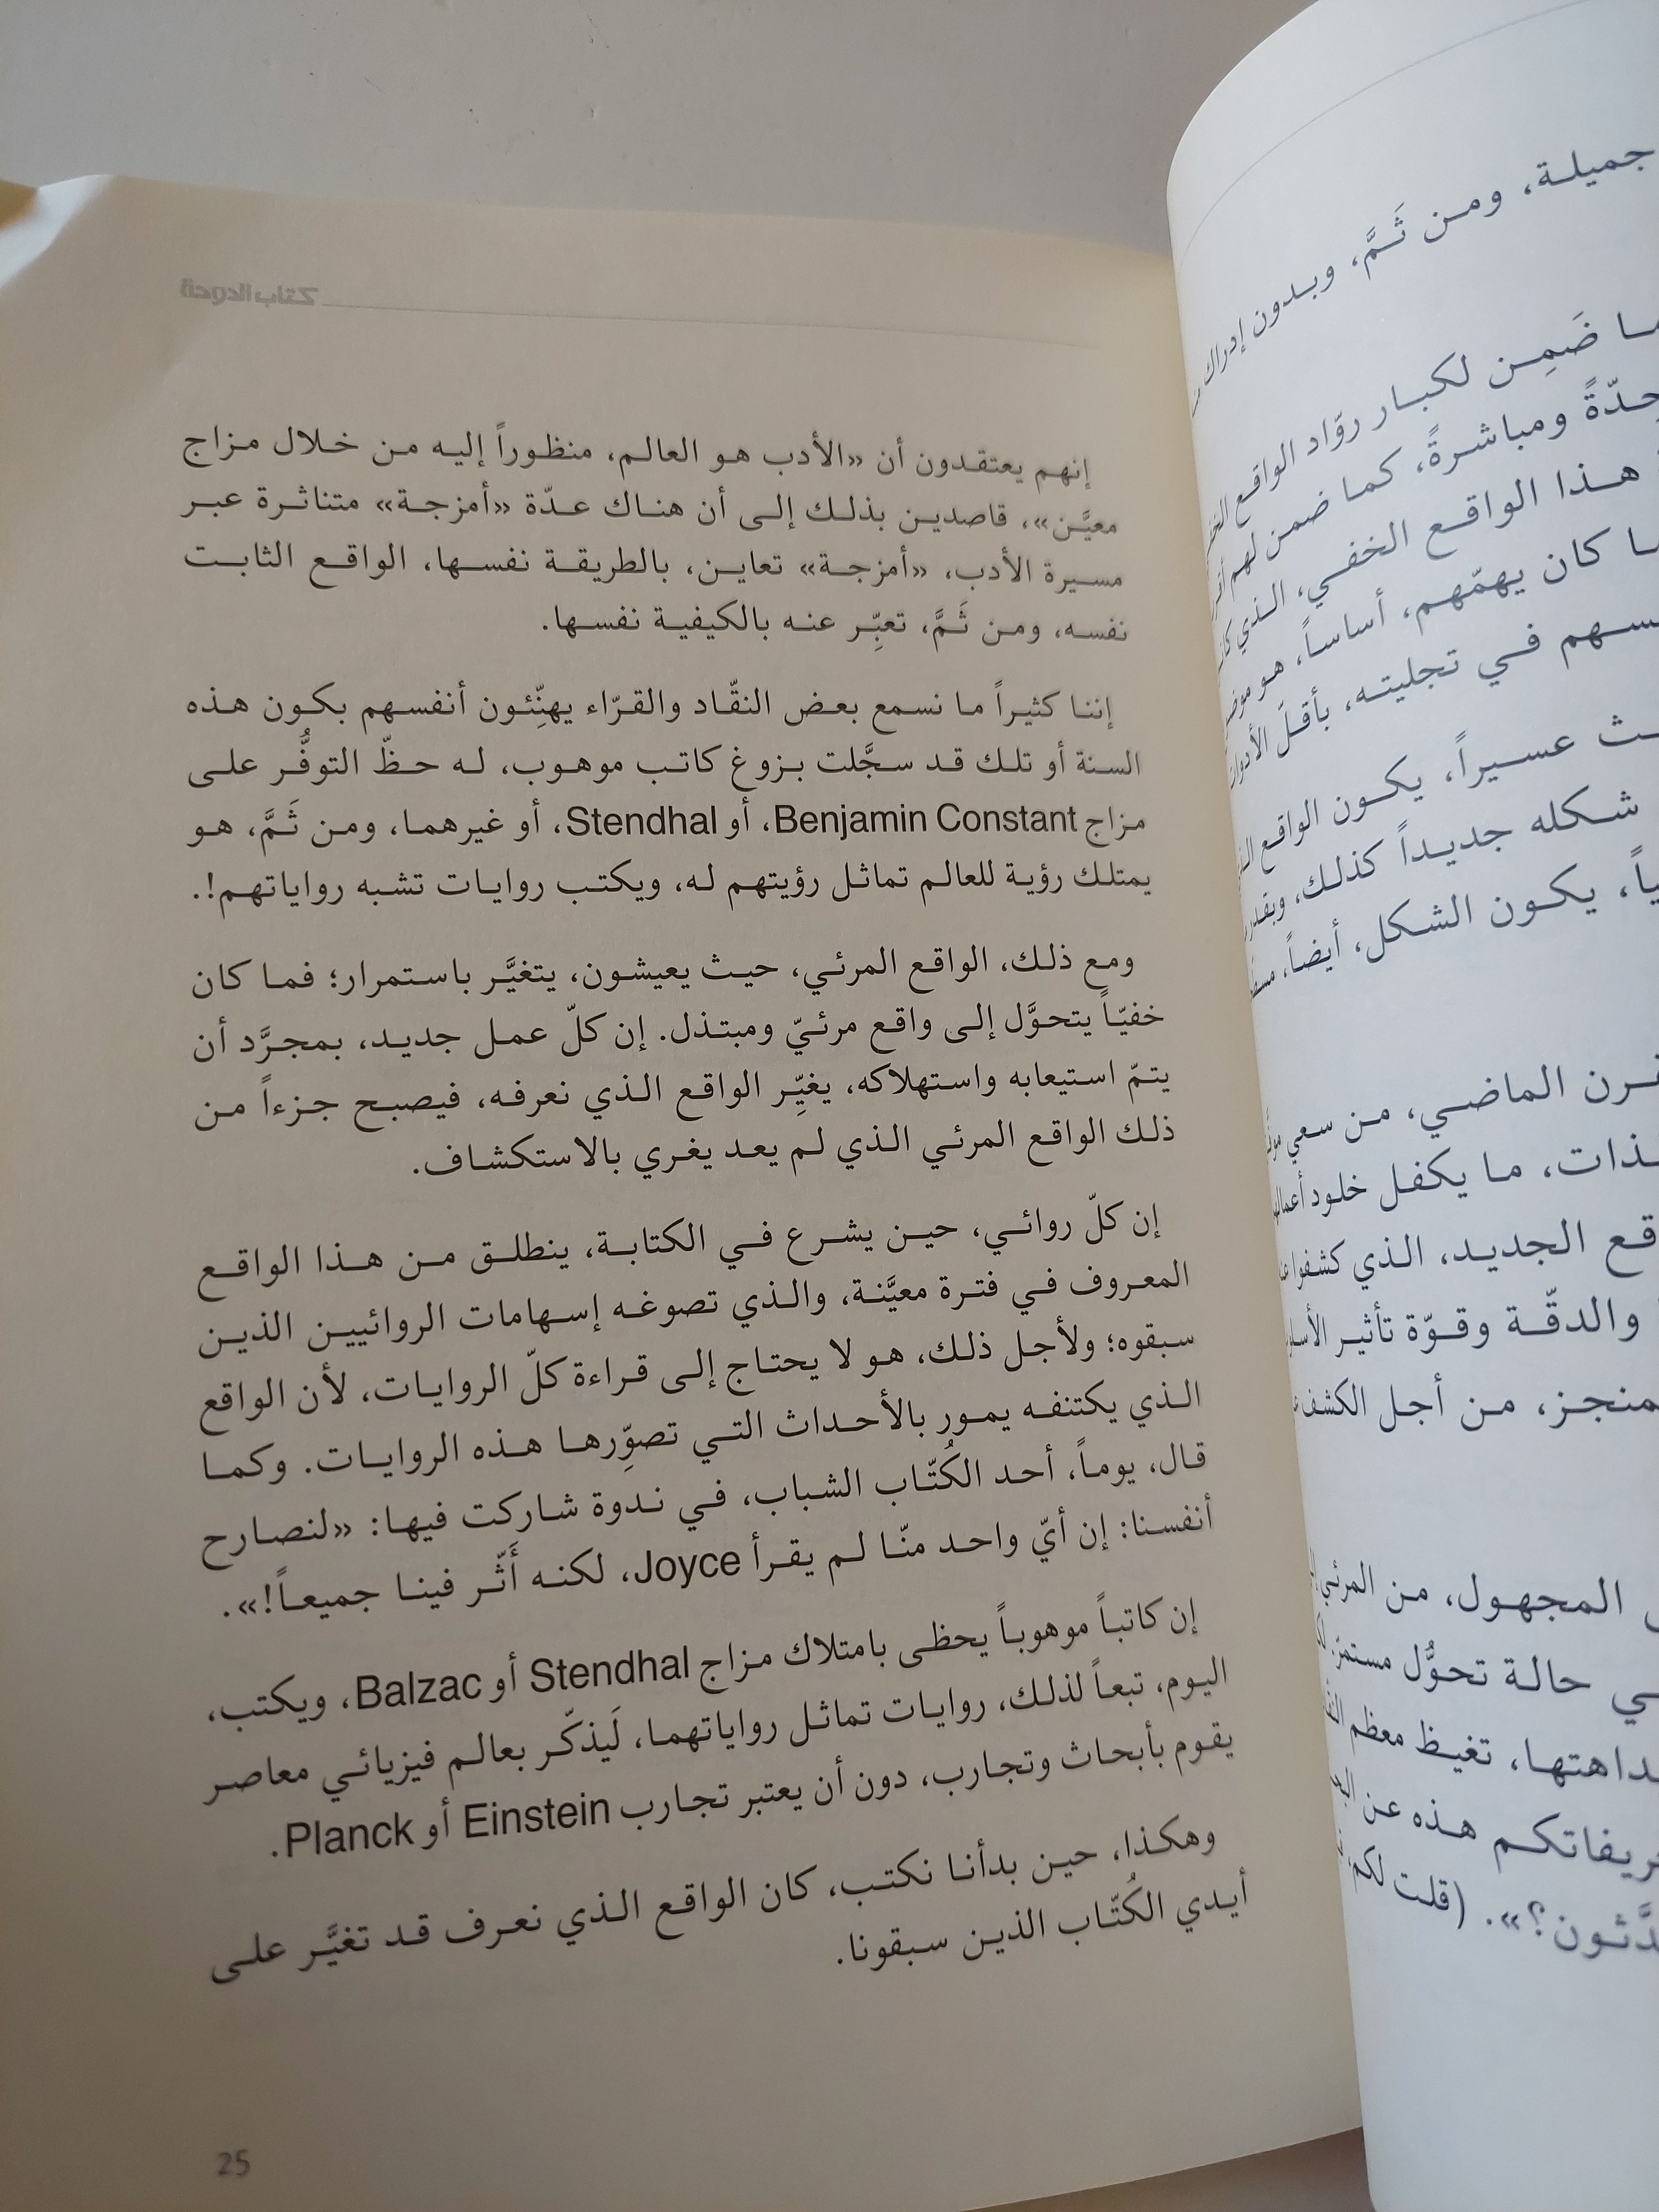 كتاب الدوحة
إنهم يعتقدون أن «الأدب هو العالم، منظوراً إليه من خلال مزاج
معيَّن»، قاصدين بذلك إلى أن هناك عدّة «أمزجة» متناثرة عبر
مسيرة الأدب، «أمزجة» تعاين، بالطريقة نفسها، الواقع الثابت
نفسه، ومن ثَمَّ، تعبِّر عنه بالكيفية نفسها.
إننا كثيراً ما نسمع بعض النقّاد والقرّاء يهنِّئون أنفسهم بكون هذه
السنة أو تلك قد سجَّلت بزوغ كاتب موهوب، له حظّ التوفُّر على
مزاج Benjamin Constant، أو Stendhal، أو غيرهما، ومن ثَمَّ، هو
يمتلك رؤية للعالم تماثل رؤيتهم له، ويكتب روايات تشبه رواياتهم!.
ومع ذلك، الواقع المرئي، حيث يعيشون، يتغيَّر باستمرار؛ فما كان
خفيّاً يتحوَّل إلى واقع مرئيّ ومبتذل. إن كلّ عمل جديد، بمجرَّد أن
يتمّ استيعابه واستهلاكه، يغيِّر الواقع الذي نعرفه، فيصبح جزءاً من
ذلك الواقع المرئي الذي لم يعد يغري بالاستكشاف.
إن كلّ روائي، حين يشرع في الكتابة، ينطلق من هذا الواقع
المعروف في فترة معيَّنة، والذي تصوغه إسهامات الروائيين الذين
سبقوه؛ ولأجل ذلك، هو لا يحتاج إلى قراءة كلّ الروايات، لأن الواقع
الذي يكتنفه يمور بالأحداث التي تصوِّرها هذه الروايات. وكما
قال، يوماً، أحد الكُتّاب الشباب، في ندوة شاركت فيها: «لنصارح
أنفسنا: إن أيّ واحد منّا لم يقرأ Joyce، لكنه أَثّر فينا جميعاً!».
إن كاتباً موهوباً يحظى بامتلاك مزاج Stendhal أو Balzac، ويكتب،
اليوم، تبعاً لذلك، روايات تماثل رواياتهما، لَيذكّر بعالم فيزيائي معاصر
يقوم بأبحاث وتجارب، دون أن يعتبر تجارب Einstein أو Planck.
وهكذا، حين بدأنا نكتب، كان الواقع الذي نعرف قد تغيَّر على
أيدي الكُتّاب الذين سبقونا.
25
جميلة، ومن ثَمَّ، وبدون إدراك
ضَمِن لكبار روّاد الواقع
ومباشرةً، كما ضمن لهم
هذا الواقع الخفي، الذي
كان يهمّهم، أساساً، هو
في تجليته، بأقلّ
عسيراً، يكون الواقع
شكله جديداً كذلك، وبقدر
يكون الشكل، أيضاً،
الماضي، من سعي
ما يكفل خلود
الجديد، الذي كشفوا
والدقّة وقوّة تأثير
من أجل الكشف
المجهول، من المرئي
حالة تحوُّل
تغيظ معظم
هذه عن
(قلت لكم